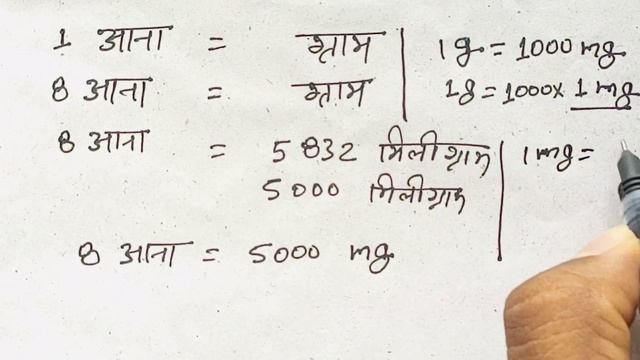 1 आना = ग्राम | 1g = 1000 mg
8 आना = ग्राम | 1g = 1000 x 1 mg
8 आना = 5832 मिलीग्राम | 1mg =
5000 मिलीग्राम
8 आना = 5000 mg